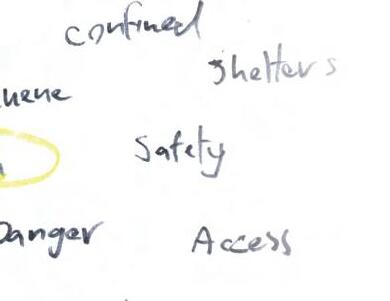 confined
shelters
Safety
Danger
Access